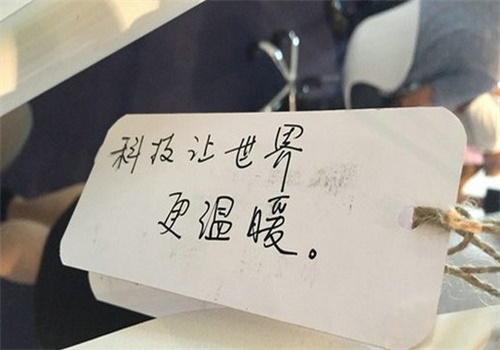 科技让世界
更温暖。